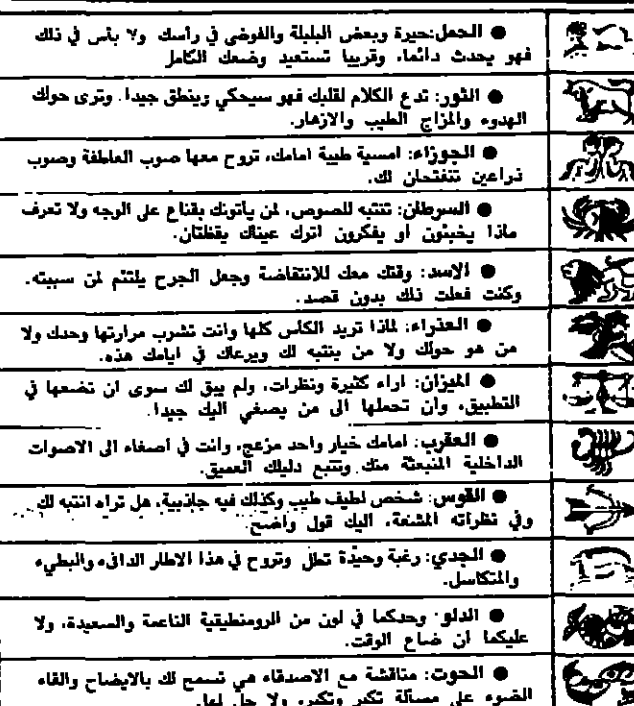 ● الحمل: حيرة وبعض البلبلة والفوضى في رأسك ولا بأس في ذلك
فهو يحدث دائما، وقريبا تستعيد وضعك الكامل
● الثور: تدع الكلام لقلبك فهو سيحكي وينطق جيدا. وترى حولك
الهدوء والمزاج الطيب والازهار.
● الجوزاء: امسية طيبة امامك، تروح معها صوب العاطفة وصوب
ذراعين تنفتحان لك.
● السرطان: تنتبه للصوص، لمن يأتونك بقناع على الوجه ولا تعرف
ماذا يخبئون او يفكرون اترك عيناك يقظتان.
● الاسد: وقتك معك للانتفاضة وجعل الجرح يلتئم لمن سببته.
وكنت فعلت ذلك بدون قصد.
● العذراء: لماذا تريد الكأس كلها وانت تشرب مرارتها وحدك ولا
من هو حولك ولا من ينتبه لك ويرعاك في ايامك هذه.
● الميزان: اراء كثيرة ونظرات، ولم يبق لك سوى ان تضعها في
التطبيق، وان تحملها الى من يصغي اليك جيدا.
● العقرب: امامك خيار واحد مزعج، وانت في اصغاء الى الاصوات
الداخلية المنبعثة منك وتتبع دليلك العميق.
● القوس: شخص لطيف طيب وكذلك فيه جاذبية، هل تراه انتبه لك
وفي نظراته المشعة، اليك قول واضح.
● الجدي: رغبة وحيدة تطل وتروح في هذا الاطار الدافىء والبطيء
والمتكاسل.
● الدلو: وحدكما في لون من الرومنطيقية الناعمة والسعيدة، ولا
عليكما ان ضاع الوقت.
● الحوت: مناقشة مع الاصدقاء هي تسمح لك بالايضاح والقاء
الضوء على مسألة تكبر وتكبر، ولا حل لها.